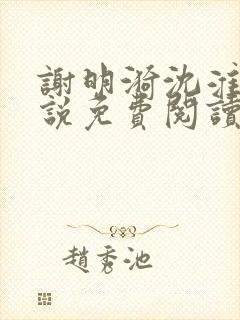 謝明漪沈淮
說免費閱讀
趙秀池